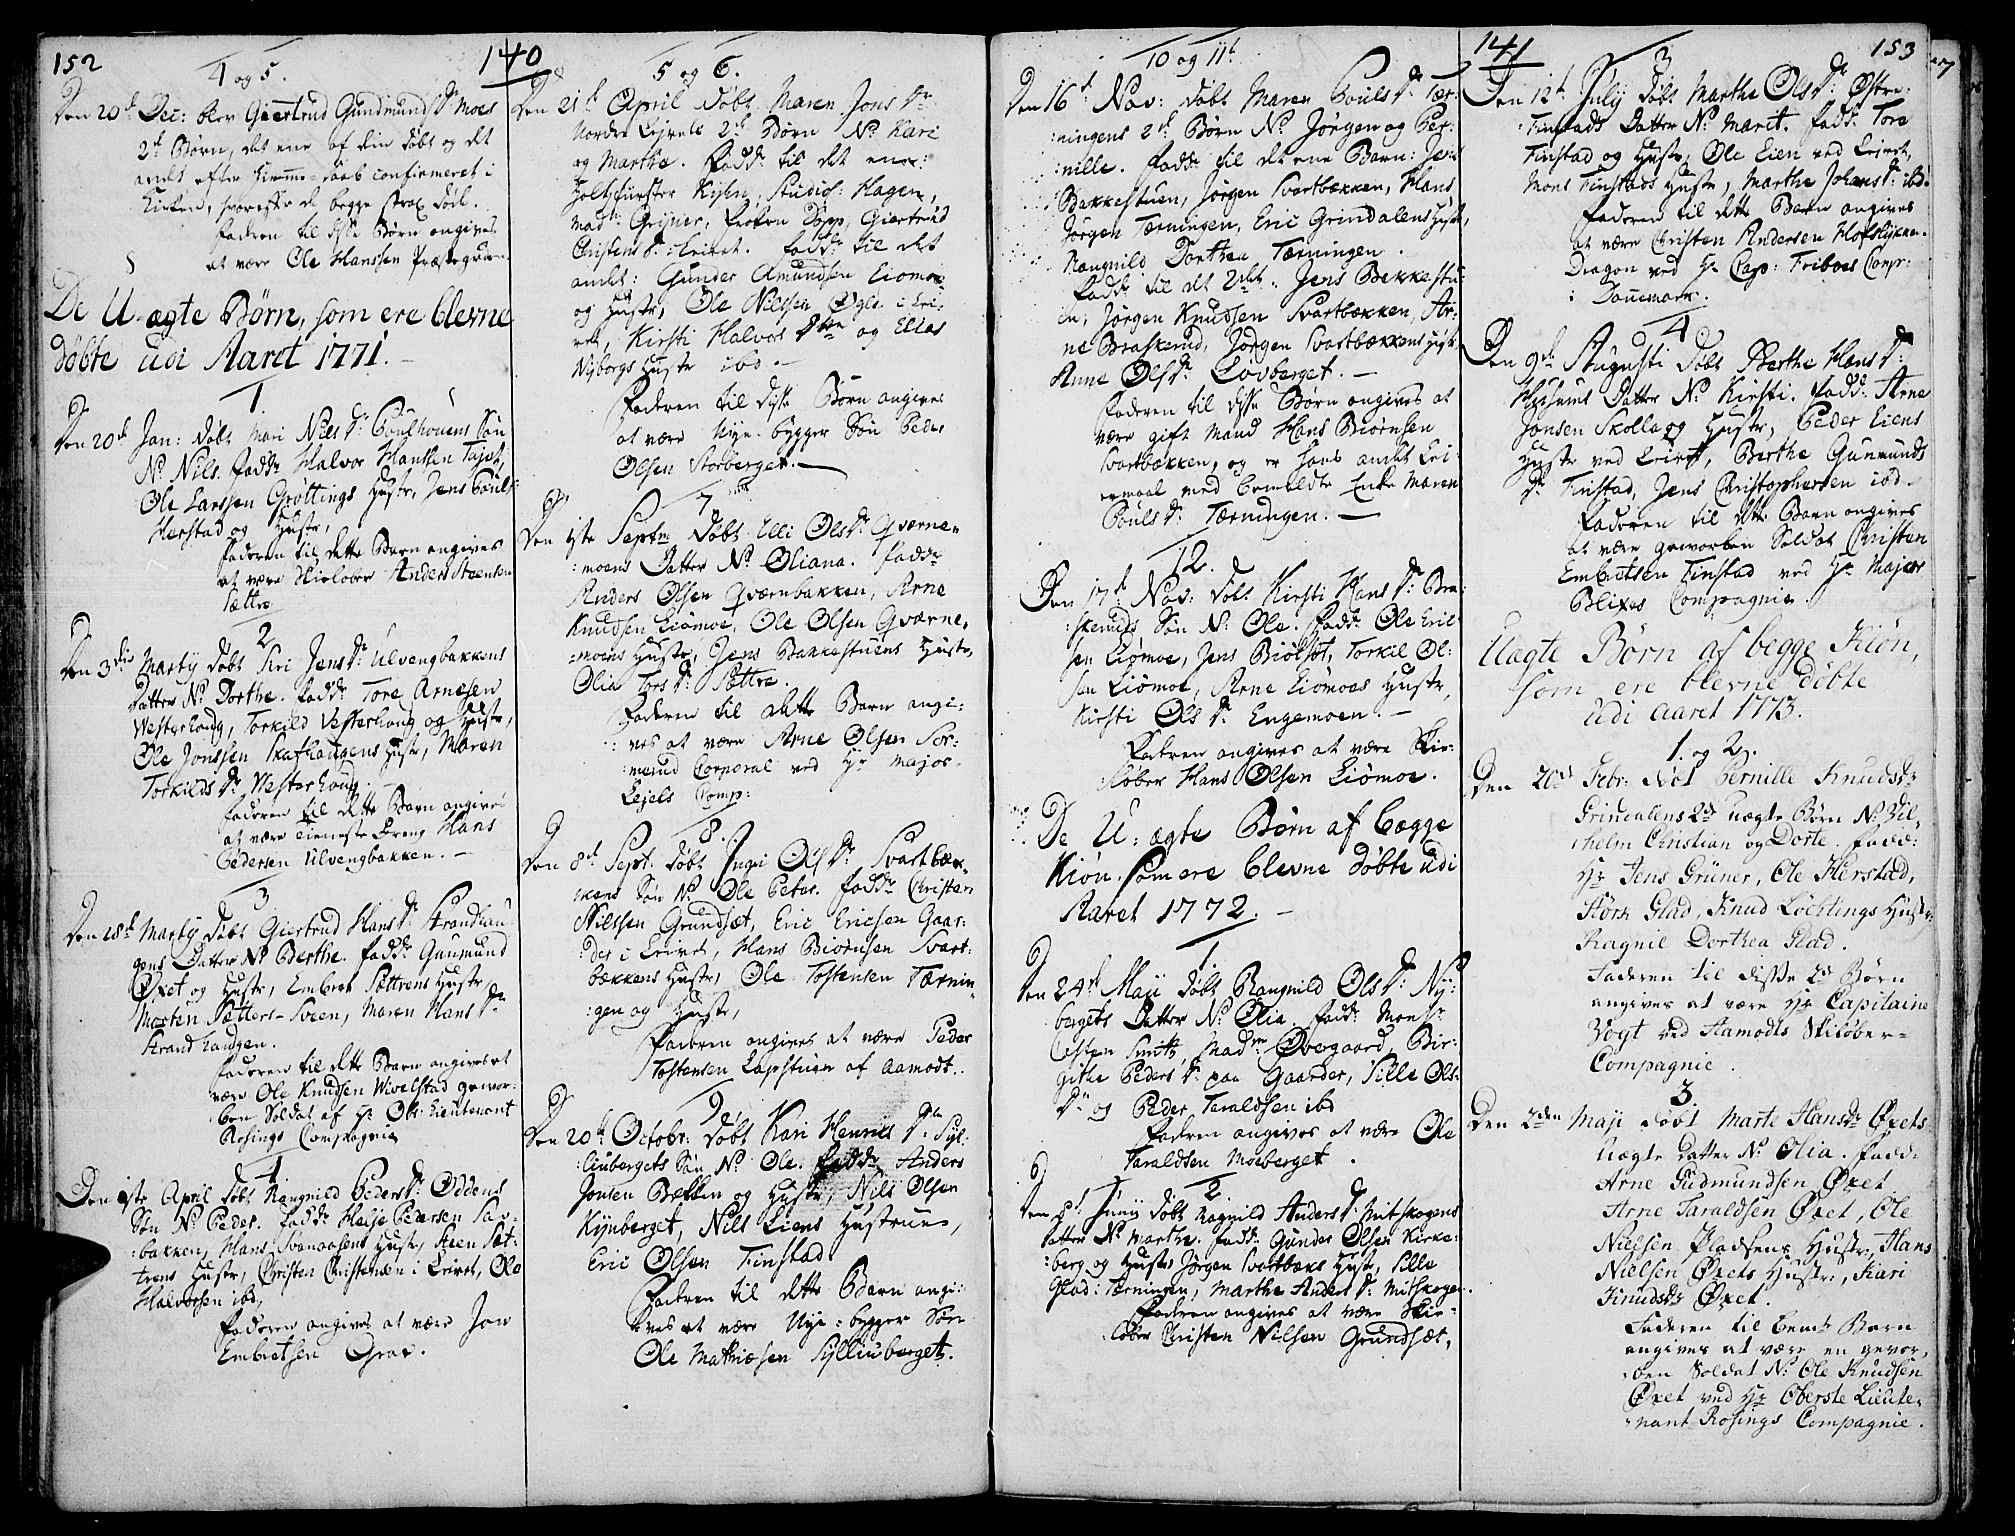 152
140
4 og 5.
Den 20de Dec: blev Giertrud Gundmunds Dr Moes
2de Børn, det ene af dem døbt og det
andet efter hiemme-daab confirmeret i
Kirken, hvorefter de begge strax døde.
Faderen til disse Børn angives
at være Ole Hanssen Præstegaarden.
De U-ægte Børn, som ere blevne
døbte udi Aaret 1771.
1.
Den 20de Jan: døbt Mari Nils Dr Poulhouens Søn
No Nils. Fadd: Halvor Hansen
Ole Larssen Grøttings Hustr, Jens Pouls:
Herstad og Hustr,
Faderen til dette Barn angives
at være Skieløber Anders Steensen
Sættre
2
Den 3die Martij døbt Siri Jens Dr Ulvengbakkens
Datter No Dorthe. Fadd: Tore Arnesen
Westerhaug, Torkild Vesterhaug og Hustr,
Ole Jonssen Skafhaugens Hustr, Maren
Torkilds Dr Westerhaug.
Faderen til dette Barn angives
at være tieneste Dreng Hans
Pedersen Ulvengbakken. —
3
Den 28de Martij døbt Giertrud Hans Dr Strandhau-
gens Datter No Berthe. Fadd: Gunmund
Øxet og Hustr, Embret Sættrens Hustr,
Morten Sætters-Sveen, Maren Hans Dr
Strandhaugen.
Faderen til dette Barn angives at
være Ole Knudsen Wivelstad gevor:
ben Soldat af Hr Ob: Lieutenant
Rosings Compagnie
4
Den 1ste April døbt Rangnild Peders Dr Oddens
Søn No Peder. Fadd: Helje Pedersen
:bakken, Hans Svenaasens Hustr, Steen Sæt-
trens Hustr, Christen Christensen i Leiret, Ole
Halvorsen ibd,
Faderen angives at være Jon
Embretsen Grav.
5 og 6.
Den 21de April døbt Maren Jons Dr
Nordre Leirets 2de Børn No Kari
og Marthe. Fadd: til det ene:
Holtzfürster Kijhn, Studios: Hagen,
Mad: Fröken Dopp, Giertrud
Christens Dr Leiret. Fadd: til det
andet: Gunder Amundsen Liømoe
og Hustr, Ole Nilssen i Lei:
ret, Kirsti Halvors Dtr og Ellas
Nyborgs Hustr ibd. —
Faderen til disse Børn angives
at være Nye-bygger Søn Peder
Olsen Storberget. —
7
Den 1ste Septm døbt Elli Ols Dr Qværne-
:moens Datter No Oliana. Fadd:
Anders Olsen Qværnbakken, Arne
Knudsen Liømoe, Ole Olsen Qværne-
:moens Hustr, Jens Bakkestuens Hustr,
Olia Tors Dr Sættre.
Faderen til dette Barn angi:
:ves at være Arne Olsen Sør:
:merud Corporal ved Hr Major
Lejels Comp:
8.
Den 8de Sept. døbt Ingri Ols Dr Svartbæk-
kens Søn No Ole Peter. Fadd: Christen
Nilssen Grundsæt, Eric Ericsen Gaar:
:der i Leiret, Hans Biørnsen Svart:
:bækkens Hustr, Ole Tostensen Tærnin-
:gen og Hustr,
Faderen angives at være Peder
Tostensen Lapstuen af Aamodt.
9
Den 20de Octobr: døbt Kari Henrics Dr Syl-
:liubergets Søn No Ole. Fadd: Anders
Jonsen Bekken og Hustr, Nils Olsen
Kynberget, Nils Liens Hustrue,
Eric Olsen Finstad
Faderen til dette Barn angi:
:ves at være Nye-bygger Søn
Ole Mathiesen Sylliuberget.
141
153
10 og 11te
Den 16de Nov: døbt Maren Pouls Dr Tær:
:ningens 2de Børn No Jørgen og Per:
:nille. Fadd: til det ene Barn: Jens
Bakkestuen, Jørgen Svartbækken, Hans
Jørgen Tærningen, Eric Grindalens Hustr,
Rangnild Dorthea Tærningen.
Fadd: til det 2det. Jens Bekkestu:
en, Jørgen Knudsen Svartbækken, Ar:
ne Braskerud, Jørgen Svartbækkens Hust:
Anne Ols Dr Løvberget. —
Faderen til disse Børn angives at
være gift Mand Hans Biørnsen
Svartbækken, og er hans andet Lei-
ermaal med bemeldte Enke Maren
Pouls Dr Tærningen. —
12.
Den 17de Nov: døbt Kirsti Hans Dr Bra:
:skeruds Søn No Ole. Fadd: Ole Eric
sen Liømoe, Jens Biølset, Torkil Ol:
sen Liømoe, Arne Liømoes Hustr,
Kirsti Ols Dr Engemoen. —
Faderen angives at være Skie-
:løber Hans Olsen Liømoe.
De U:ægte Børn af begge
Kiøn, som ere blevne døbte udi
Aaret 1772. —
1.
Den 24de Maji døbt Rangnild Ols Dr Ny:
bergets Datter No Olia. Fadd: Monsr
Smith, Madme Overgaard, Bir:
githe Peders Dr paa Gaarder, Sille Ols:
Dr og Peder Taraldsen ibd
Faderen angives at være Ole
Taraldsen Moeberget.
2
Den 8de Junij døbt Ragnild Anders Dr Mitskogens
Datter No Marthe. Fadd: Gunder Olsen Kirke:
:berg og Hustr, Jørgen Svartbæks Hustr, Sille
Glad: Tærningen, Marthe Anders Dr Mitskogen.
Faderen angives at være Skie-
:løber Christen Nilsen Grundsæt.
3
Den 12te Julij døbt Marthe Ols Dr Østre-
:Finstads Datter No Marit. Fadd: Tore
Finstad og Hustr, Ole Lien ved Leiret,
Mons Finstads Hustr, Marthe Johans Dr ibd.
Faderen til dette Barn angives
at være Christen Andersen Hofslykken.
Dragon ved Hr Cap: Friboes Comp:
i Dannemark.
4
Den 9de Augusti døbt Berthe Hans Dr
Husums Datter No Kirsti. Fadd: Arne
Jonsen Skolla og Hustr, Peder Liens
Hustr ved Leiret, Berthe Gunmunds
Dr Finstad, Jens Christophersen ibd.
Faderen til dette Barn angives
at være geworben Soldat Christen
Embretsen Finstad ved Hr Major
Blixes Compagnie.
Uægte Børn af begge Kiøn,
som ere blevne døbte
Udi Aaret 1773.
1. og 2.
Den 20de Febr: døbt Pernille Knudsdr
Grindalens 2de uægte Børn No Vil-
:helm Christian og Dorte. Fadd:
Hr Jens Grüner, Ole Herstad,
Størk Glad, Knud Løchtings Hustr:
Ragnil Dorthea Glad.
Faderen til disse 2de Børn
angives at være Hr Capitaine
Vogt ved Aamodts Skiløber-
Compagnie.
3.
Den 2den Maji døbt Marte Hansdr Øxets
Uægte Datter No Olia. Fadd:
Arne Gudmundsen Øxet
Arne Taraldsen Øxet, Ole
Nielsen Pladsens Hustr, Hans
Nielsen Øxets Hustr:, Kari
Knudsdr Øxet.
Faderen til bemte Barn
angives at være en gevor,
:ben Soldat No Ole Knudsen
Øxet ved Hr Oberste Lieute-
:nant Rosings Compagnie.